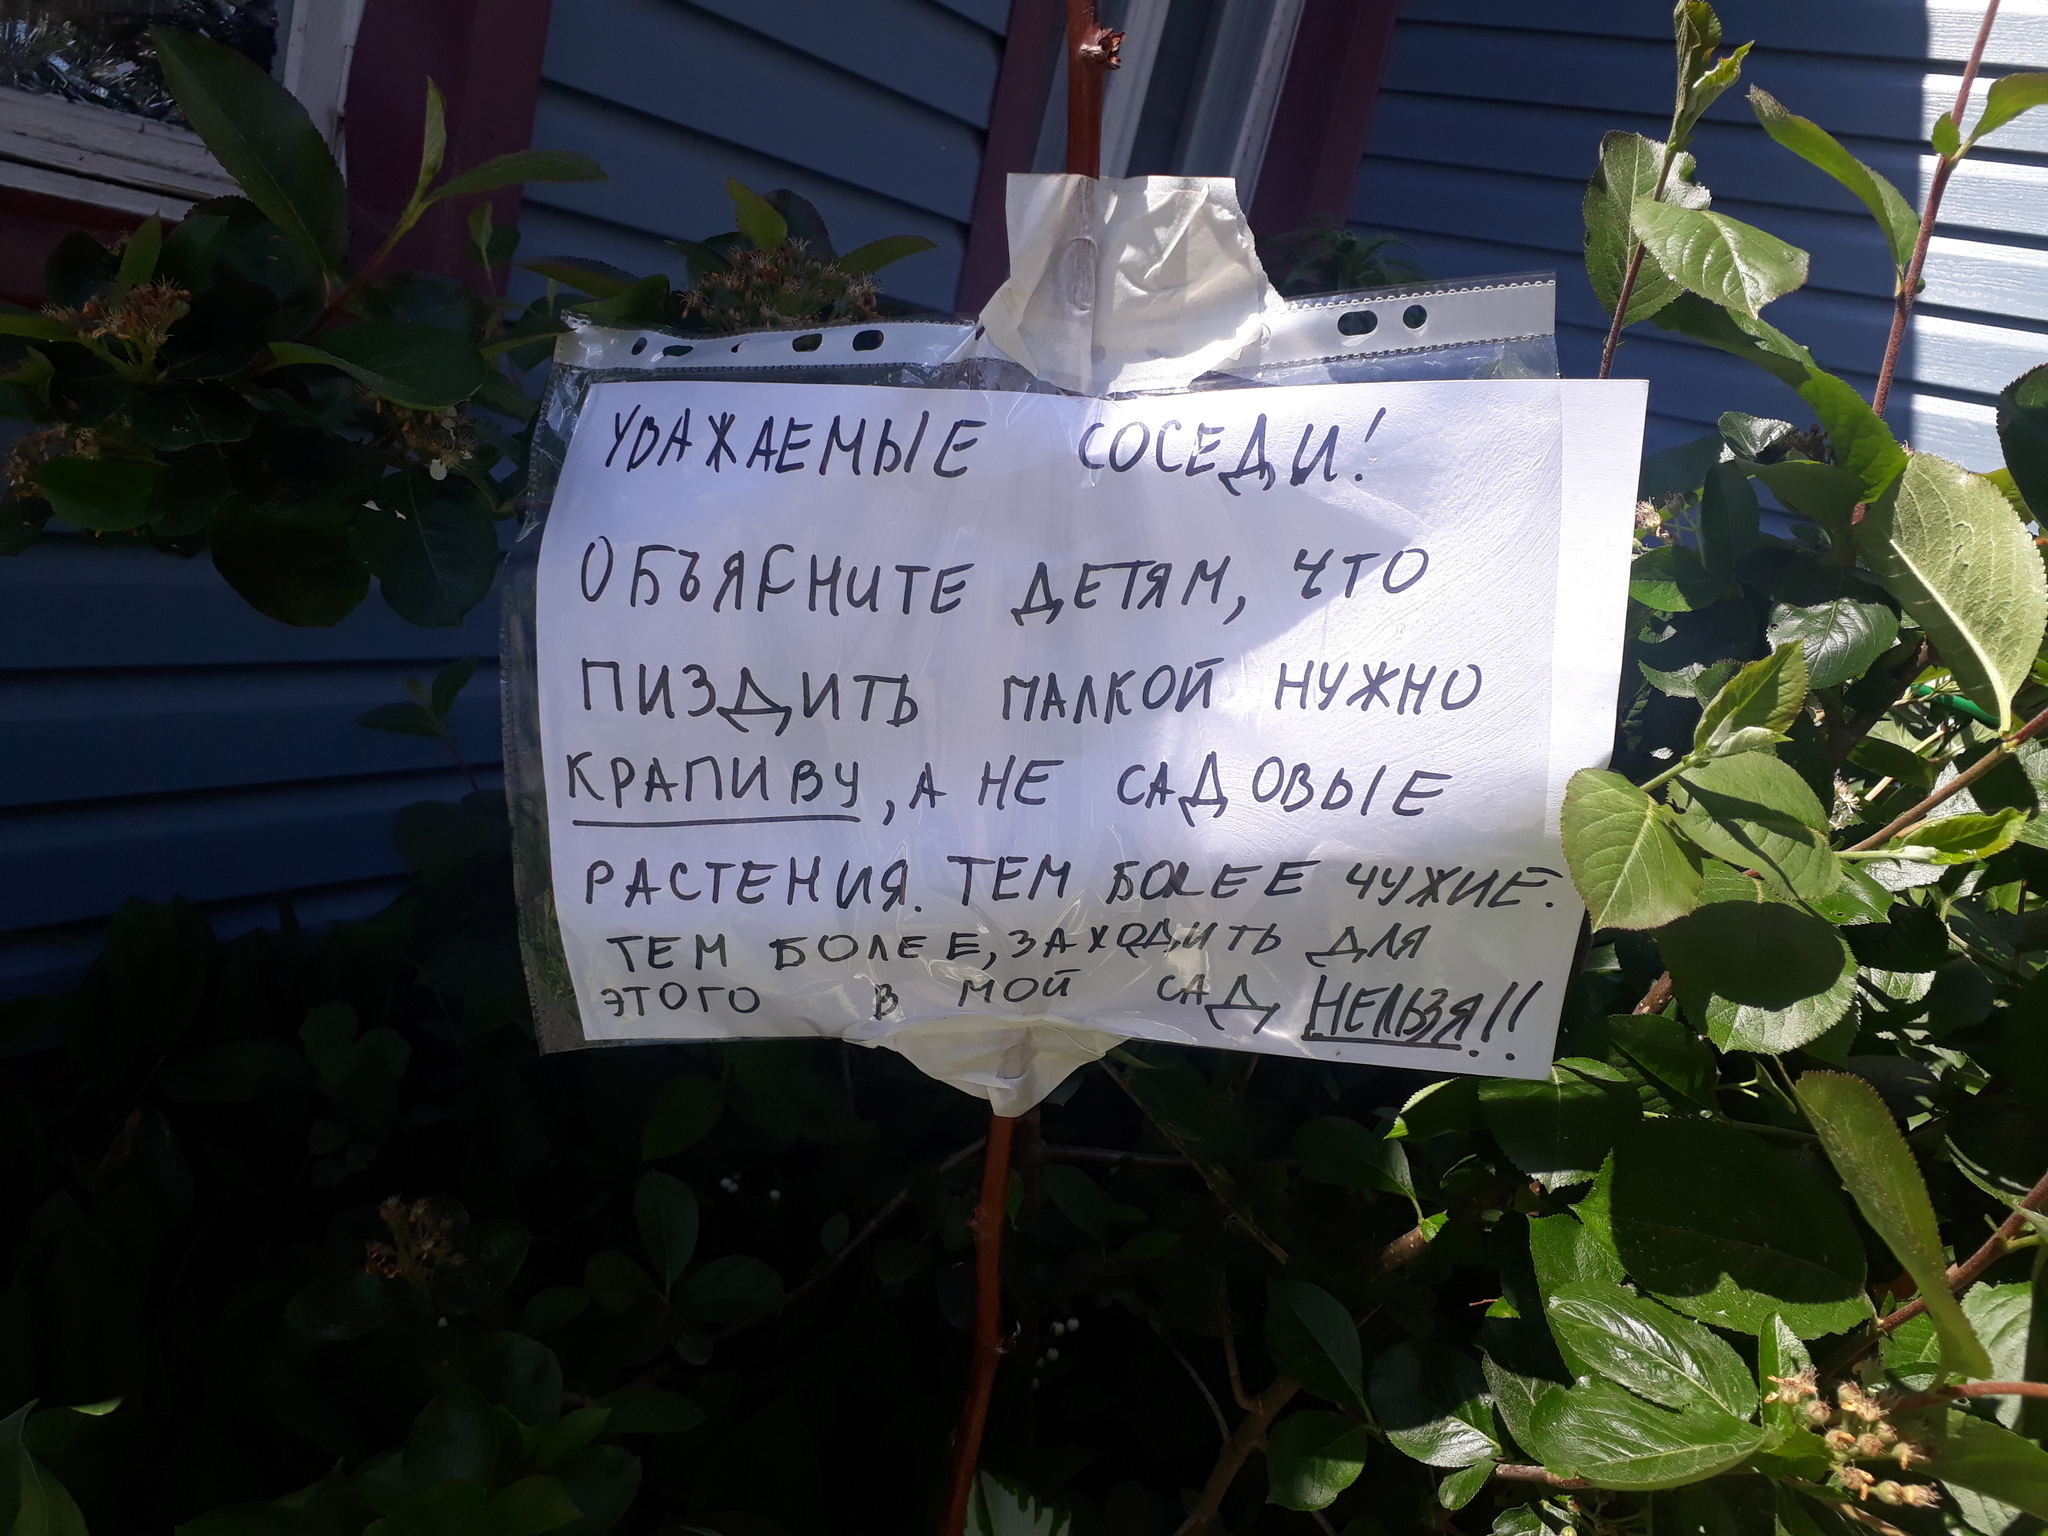 УВАЖАЕМЫЕ СОСЕДИ!
ОБЪЯСНИТЕ ДЕТЯМ, ЧТО
ПИЗДИТЬ ПАЛКОЙ НУЖНО
КРАПИВУ, А НЕ САДОВЫЕ
РАСТЕНИЯ. ТЕМ БОЛЕЕ ЧУЖИЕ.
ТЕМ БОЛЕЕ, ЗАХОДИТЬ ДЛЯ
ЭТОГО В МОЙ САД НЕЛЬЗЯ!!